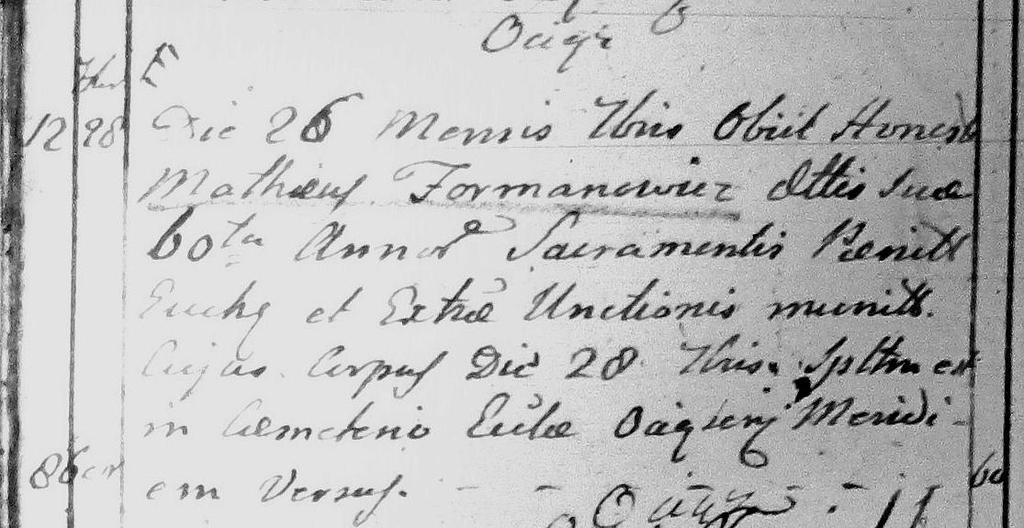 E
12 28 Die 26 Mensis Xbris Obiit Honest
Mathæus Formanowicz Ættis Suæ
60ta Annor Sacramentis Pænitt
Euchæ et Extræ Unctionis munitt.
Cujus Corpus Die 28 Xbris. Spltm est
in Cæmeterio Ecclæ Meridi-
em Versus. 60